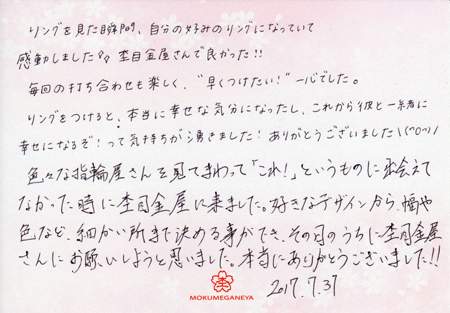 リングを見た瞬間、自分の好みのリングになっていて
感動しました!! 杢目金屋さんで良かった!!
毎回の打ち合わせも楽しく、"早くつけたい!"一心でした。
リングをつけると、本当に幸せな気分になったし、これから彼と一緒に
幸せになるぞ!って気持ちが湧きました!ありがとうございました\(^o^)/
色々な指輪屋さんを見てまわって「これ!」というものに出会えて
なかった時に杢目金屋に来ました。好きなデザインから、幅や
色など、細かい所まで決める事ができ、その日のうちに杢目金屋
さんにお願いしようと思いました。本当にありがとうございました!!
2017.7.31
MOKUMEGANEYA